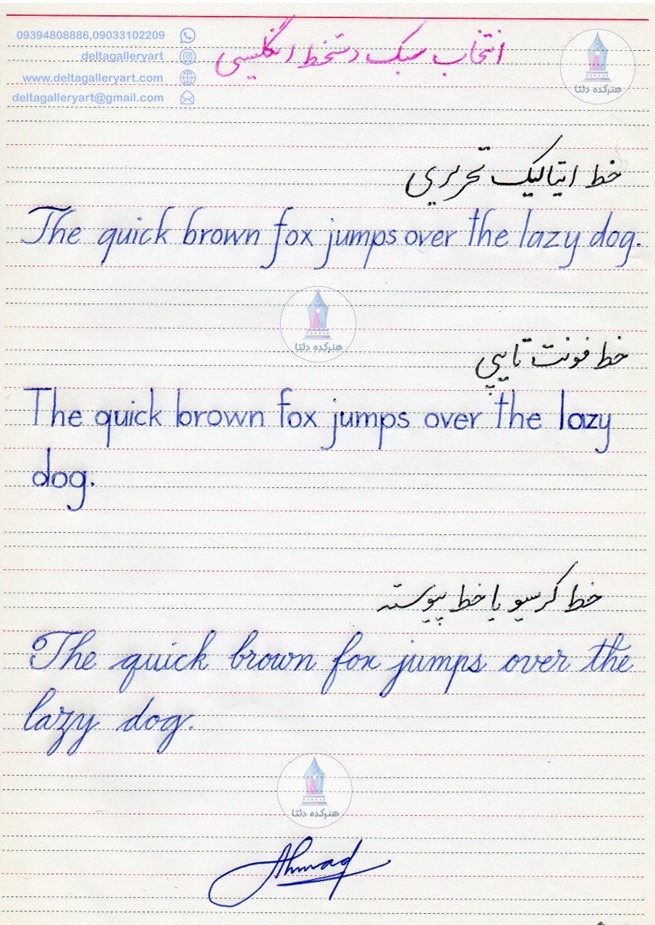 09394808886,09033102209
deltagalleryart
www.deltagalleryart.com
deltagalleryart@gmail.com
انتخاب سبک دستخط انگلیسی
هنرکده دلتا
خط ایتالیک تحریری
The quick brown fox jumps over the lazy dog.
هنرکده دلتا
خط فونت تایپی
The quick brown fox jumps over the lazy
dog.
خط کرسیو یا خط پیوسته
The quick brown fox jumps over the
lazy dog.
هنرکده دلتا
Ahmad